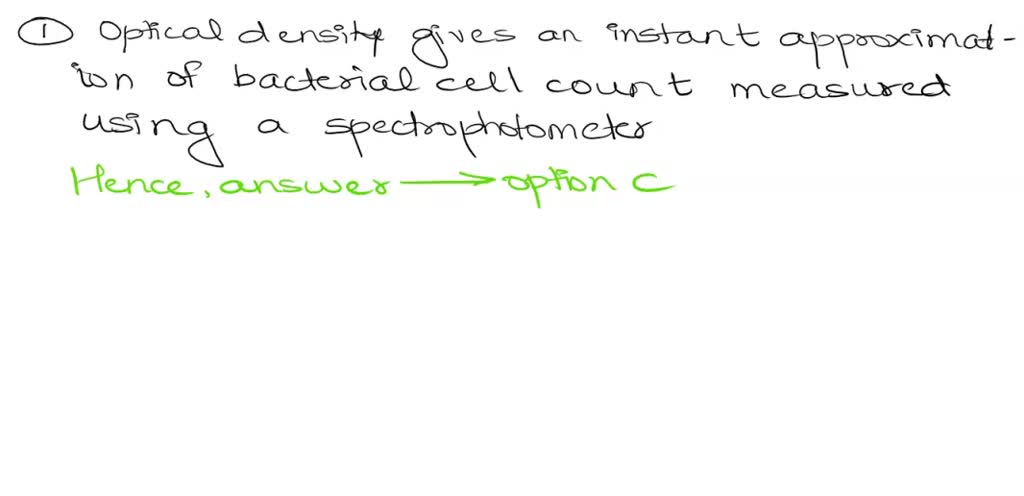 ① Optical density gives an instant approximat-
ion of bacterial cell count measured
using a spectrophotometer
Hence, answer → option C